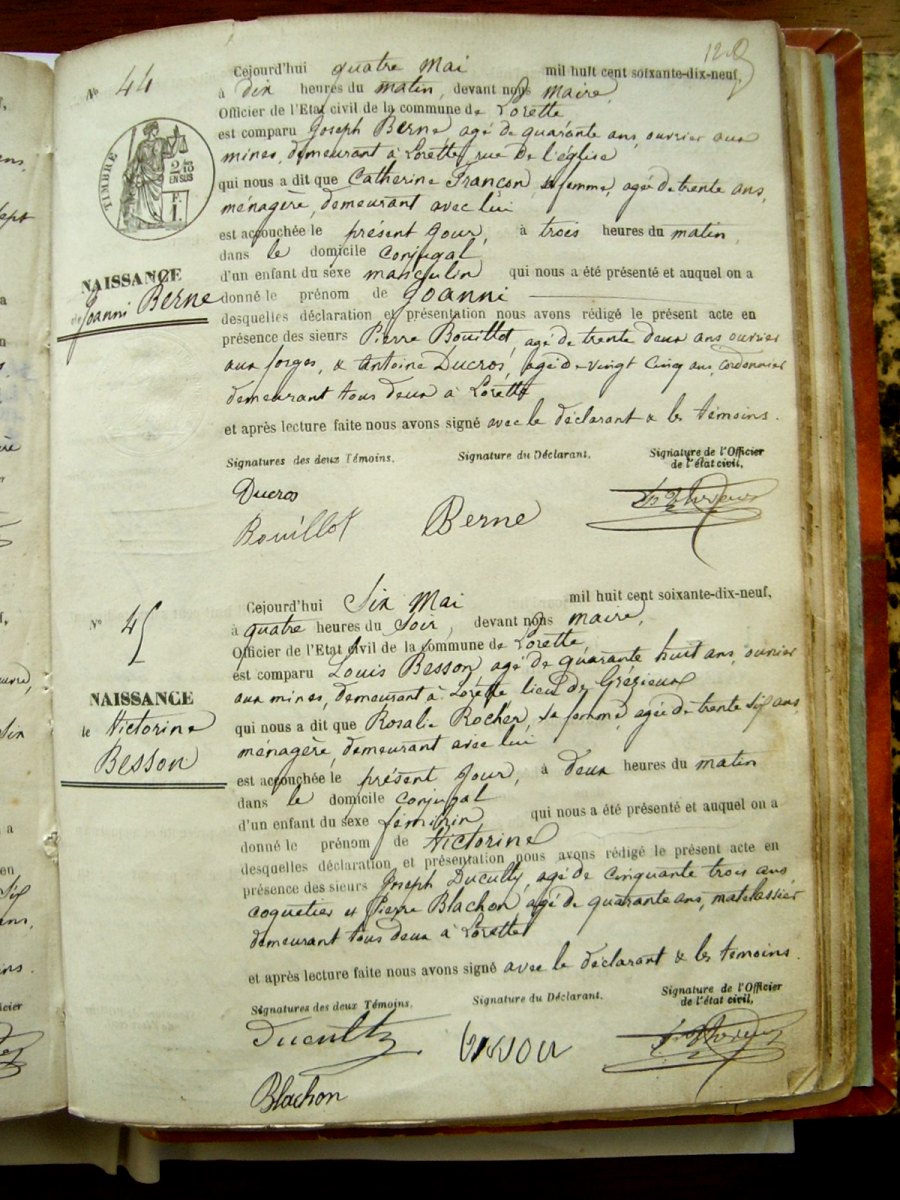 No 44
Cejourd'hui quatre Mai mil huit cent soixante-dix-neuf,
à dix heures du matin, devant nous maire,
Officier de l'Etat civil de la commune de Lorette
est comparu Joseph Berne agé de quarante ans, ouvrier aux
mines, demeurant à Lorette, rue de l'église
qui nous a dit que Catherine Françon, sa femme, agée de trente ans,
ménagère, demeurant avec lui
est accouchée le présent jour, à trois heures du matin,
dans le domicile conjugal
d'un enfant du sexe masculin qui nous a été présenté et auquel on a
donné le prénom de Joanni
desquelles déclaration et présentation nous avons rédigé le présent acte en
présence des sieurs Pierre Bouillot, agé de trente deux ans ouvrier
aux forges, & Antoine Ducros, agé de vingt cinq ans, cordonnier
demeurant tous deux à Lorette
et après lecture faite nous avons signé avec le déclarant & les témoins.
Signatures des deux Témoins, Signature du Déclarant, Signature de l'Officier
de l'état civil,
Ducros
Bouillot Berne
TIMBRE
EN SUS
NAISSANCE
de Joanni Berne
No 45
Cejourd'hui Six Mai mil huit cent soixante-dix-neuf,
à quatre heures du Soir, devant nous maire,
Officier de l'Etat civil de la commune de Lorette
est comparu Louis Besson agé de quarante huit ans, ouvrier
aux mines, demeurant à Lorette lieu de Grézieux
qui nous a dit que Rosalie Rocher, sa femme, agée de trente six ans
ménagère, demeurant avec lui
est accouchée le présent jour, à deux heures du matin
dans le domicile conjugal
d'un enfant du sexe féminin qui nous a été présenté et auquel on a
donné le prénom de Victorine
desquelles déclaration et présentation nous avons rédigé le présent acte en
présence des sieurs Joseph Ducultÿ, agé de cinquante trois ans,
coquetier et Pierre Blachon, agé de quarante ans, matelassier
demeurant tous deux à Lorette
et après lecture faite nous avons signé avec le déclarant & les témoins.
Signatures des deux Témoins, Signature du Déclarant, Signature de l'Officier
de l'état civil,
Blachon
NAISSANCE
de Victorine
Besson